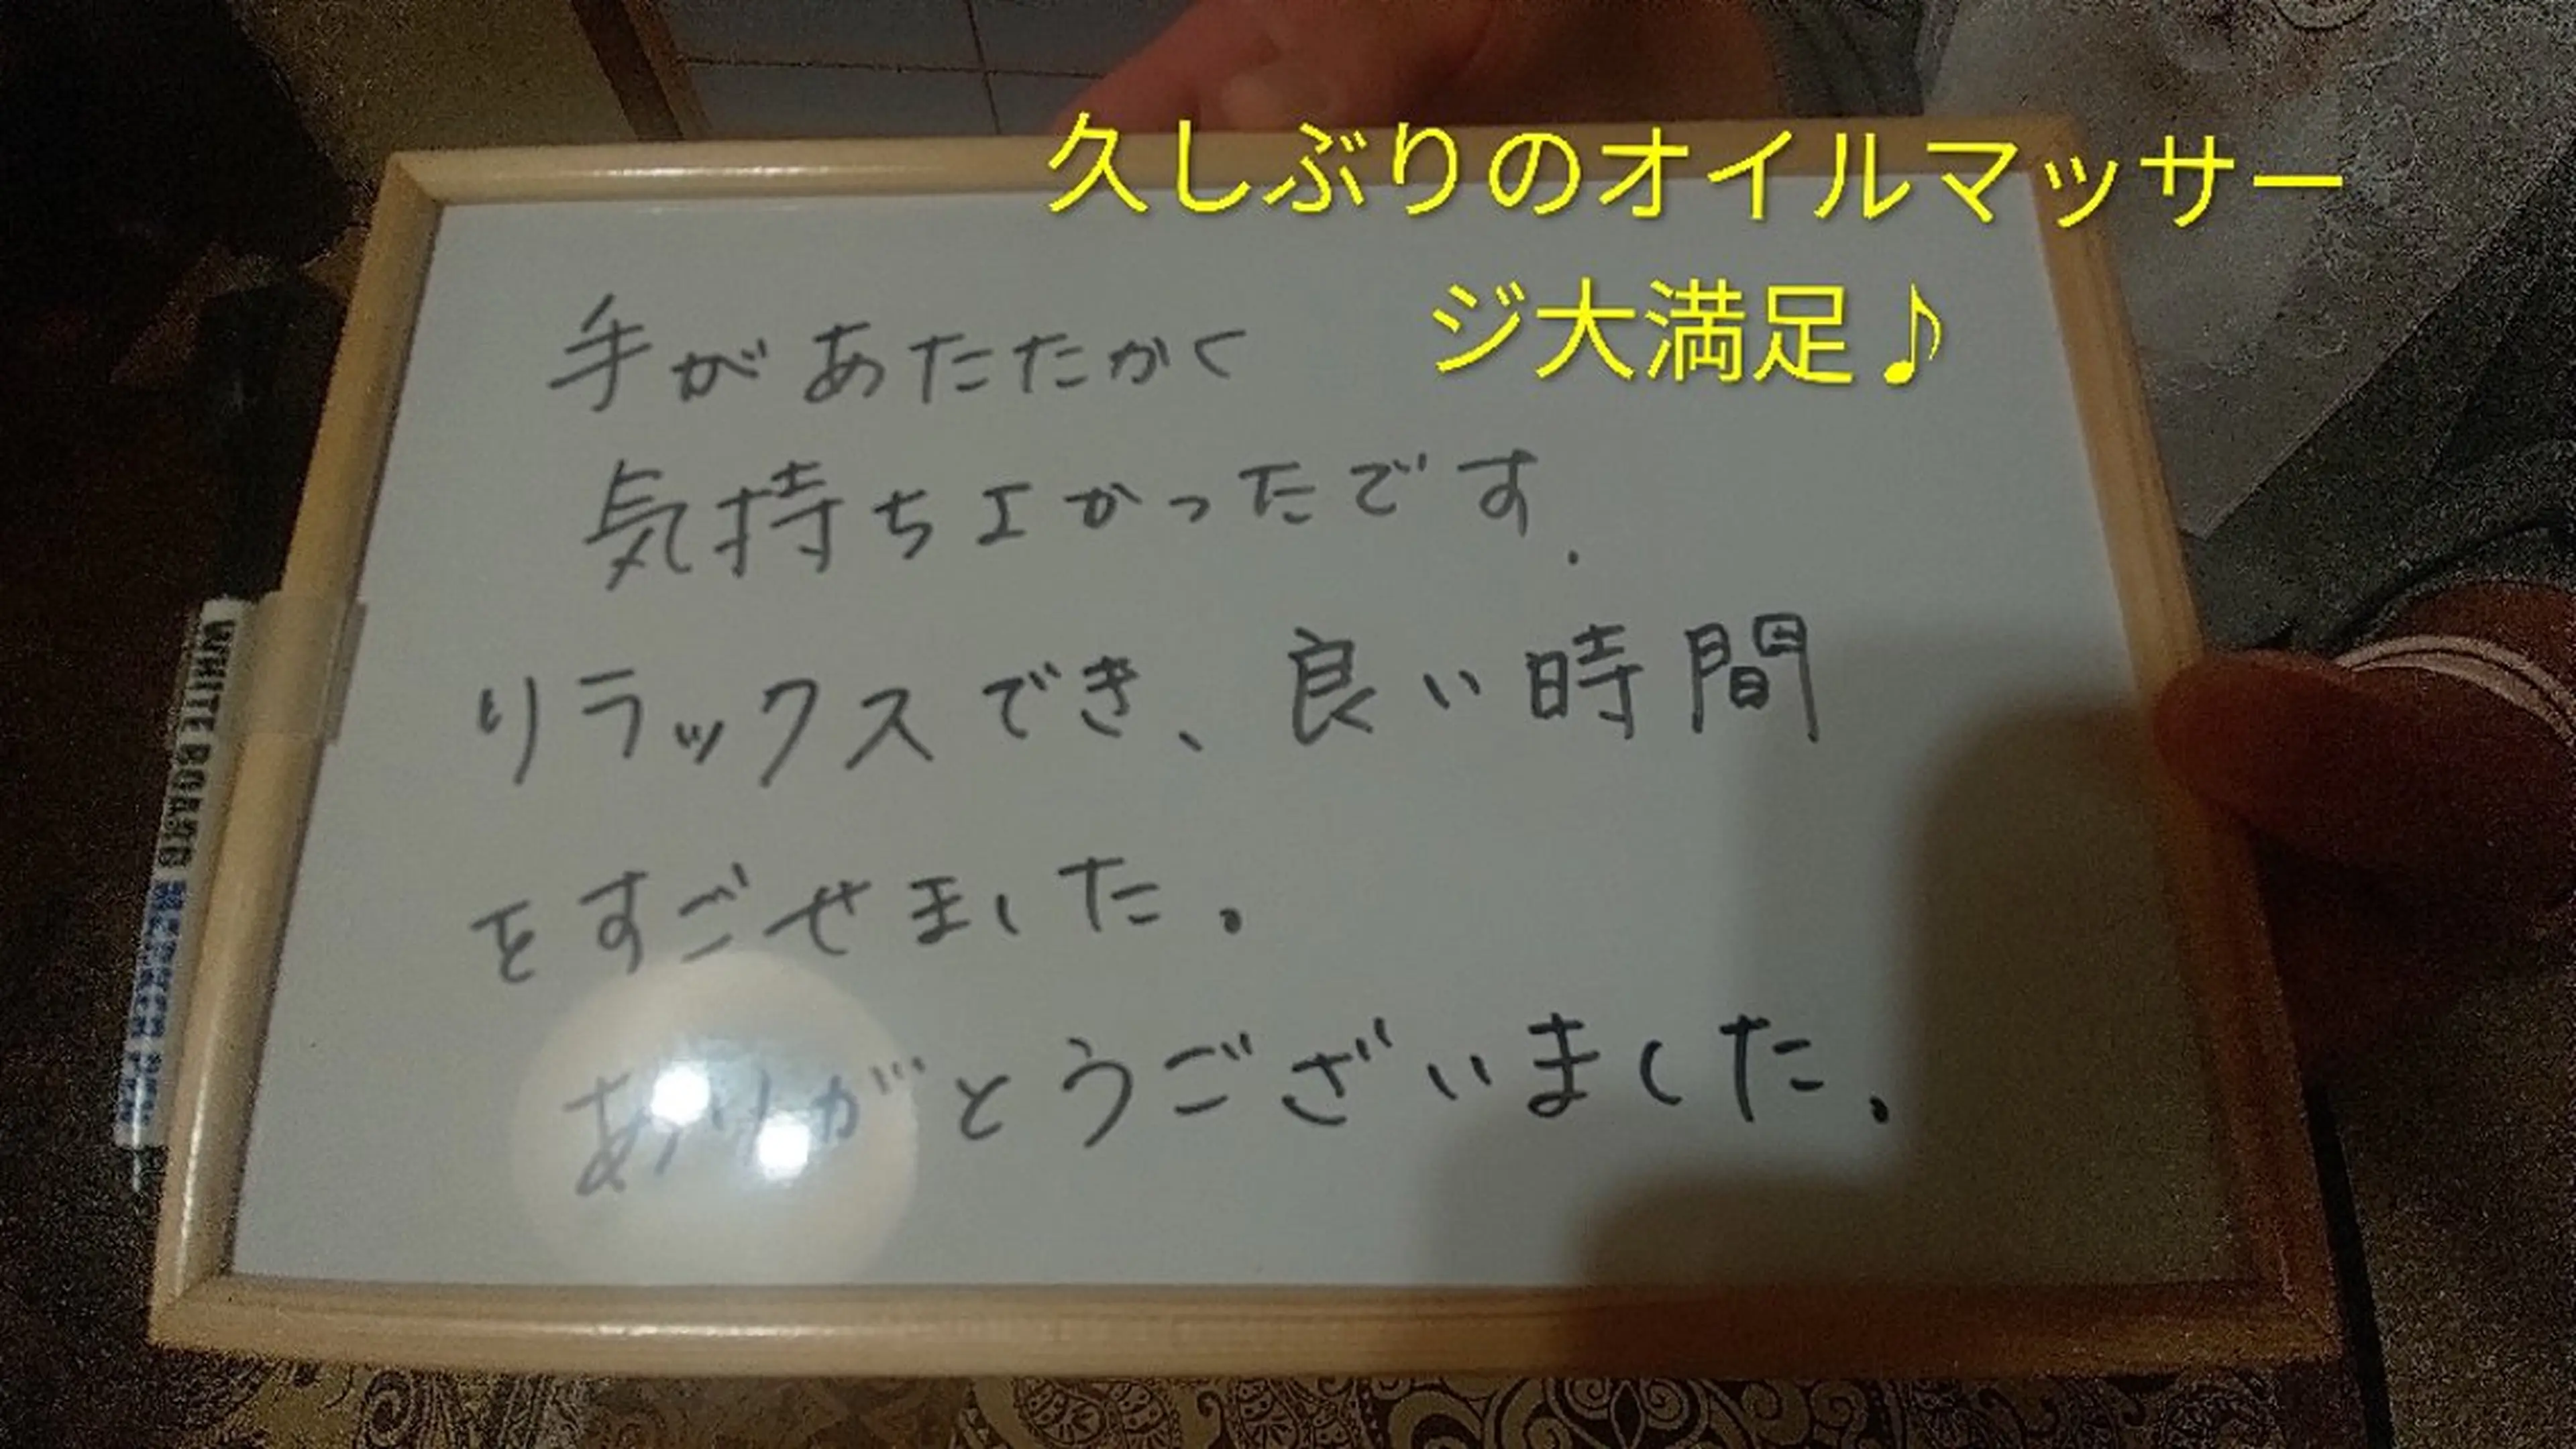 久しぶりのオイルマッサー
ジ大満足♪
手があたたかく
気持ちよかったです.
リラックスでき、良い時間
をすごせました。
ありがとうございました.
WHITE BOARD MARKER